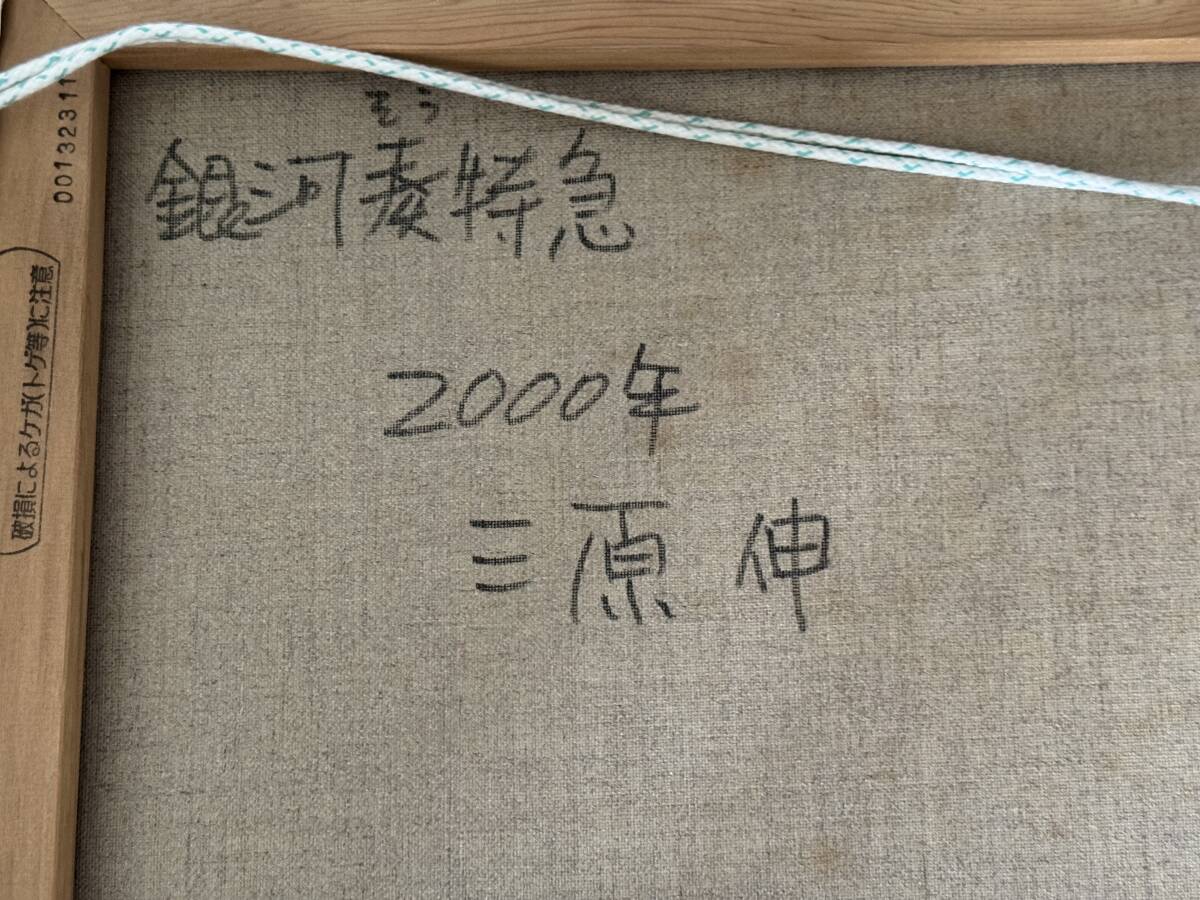 銀河麦特急
2000年
三原 伸
00132311
破損によるケガ(トゲ等)に注意